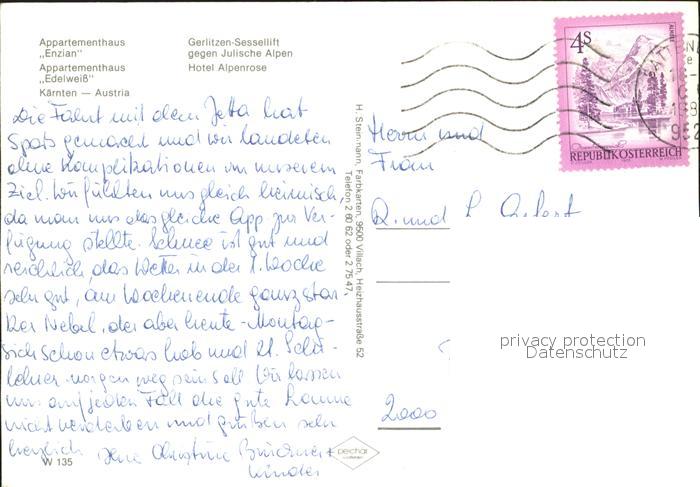 Appartementhaus
„Enzian"
Appartementhaus
„Edelweiß"
Kärnten — Austria
Gerlitzen-Sessellift
gegen Julische Alpen
Hotel Alpenrose
Die Fahrt mit dem Jetta hat
Spaß gemacht und wir landeten
ohne Komplikationen an unserem
Ziel. Wir fühlten uns gleich heimisch,
da man uns das gleiche App. zur Ver-
fügung stellte. Schnee ist gut und
reichlich, das Wetter in der 1. Woche
sehr gut, am Wochenende ganz star-
ker Nebel, der aber heute -Montag-
sich schon etwas hob und lt. Schi-
lehrer morgen weg sein soll. Wir lassen
uns auf jeden Fall die gute Laune
nicht verderben und grüßen sehr
herzlich Christine
Kinder
W 135
H. Steinmann, Farbkarten, 9500 Villach, Heizhausstraße 52
Telefon 2 60 62 oder 2 75 47
pechar
4 S
REPUBLIK ÖSTERREICH
Herrn und
Frau
R. und
2000
privacy protection
Datenschutz